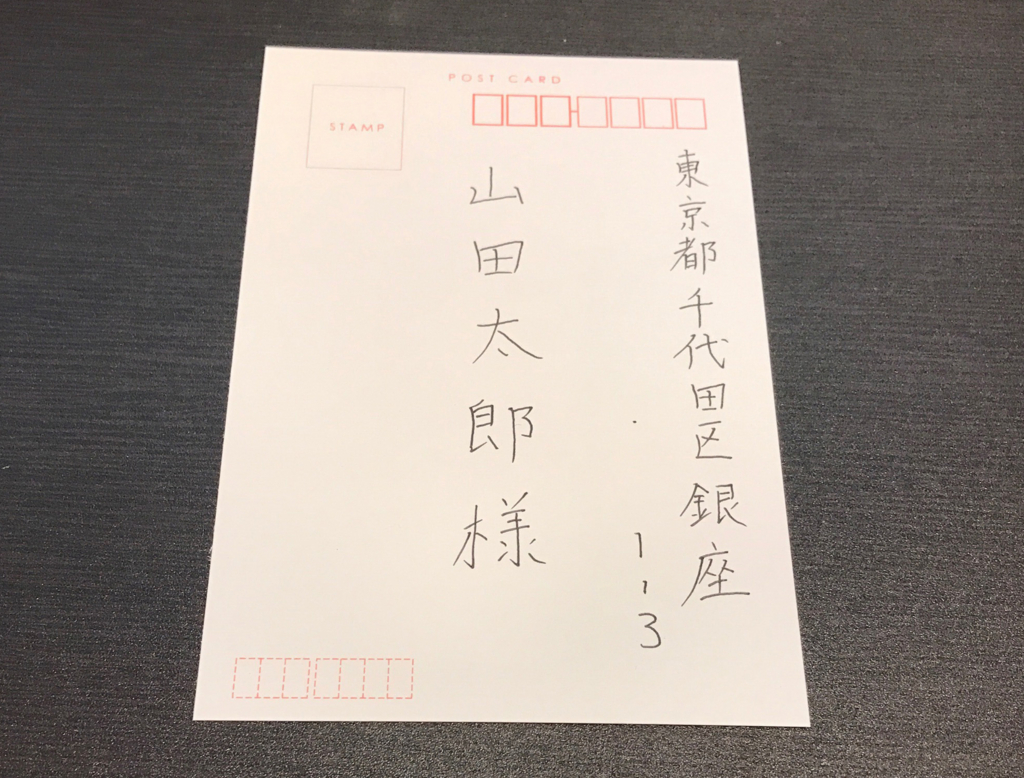 POST CARD
STAMP
東京都千代田区銀座
1-3
山田太郎様